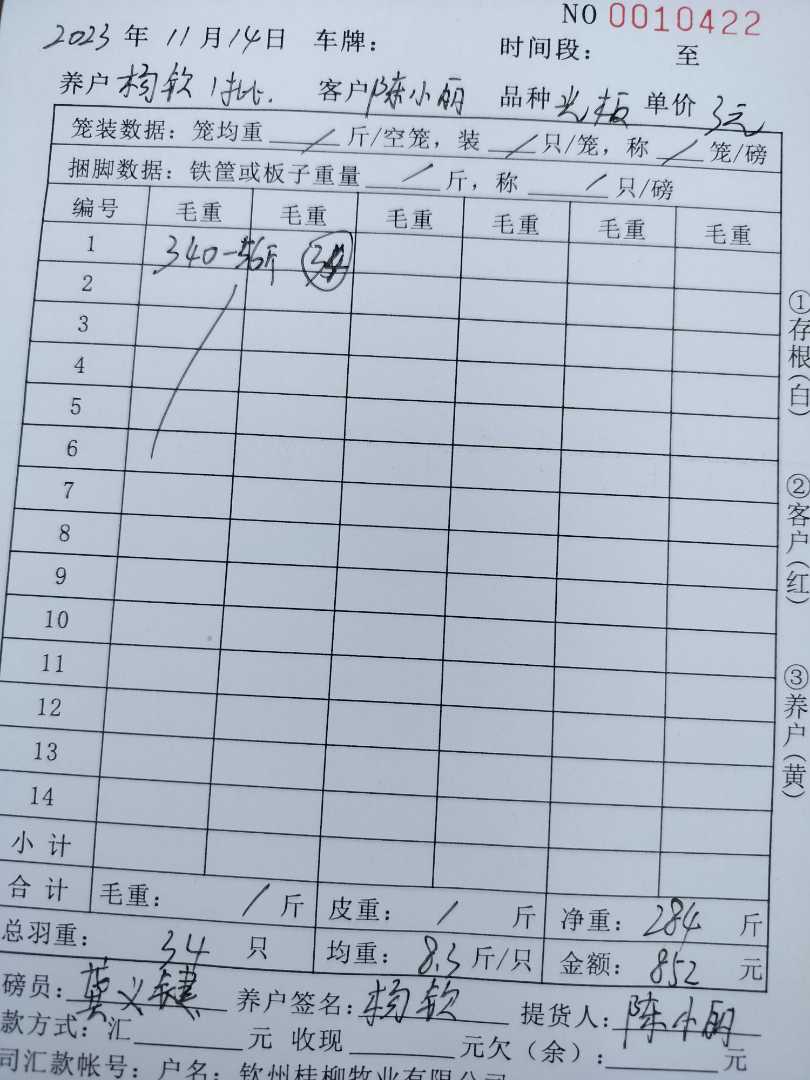 NO 0010422
2023 年 11 月 14 日 车牌： 时间段： 至
养户 杨钦 1批. 客户 陈小丽 品种 光板 单价 3元
笼装数据：笼均重 / 斤/空笼，装 / 只/笼，称 / 笼/磅
捆脚数据：铁筐或板子重量 / 斤，称 / 只/磅
编号 毛重 毛重 毛重 毛重 毛重 毛重
1 340-56斤 34
2
3
4
5
6
7
8
9
10
11
12
13
14
小计
合计 毛重： / 斤 皮重： / 斤 净重： 284 斤
总羽重： 34 只 均重： 8.3 斤/只 金额： 852 元
磅员： 莫义健 养户签名： 杨钦 提货人： 陈小丽
款方式：汇 元 收现 元欠（余）： 元
司汇款帐号：户名：钦州桂柳牧业有限公司
①存根（白）
②客户（红）
③养户（黄）